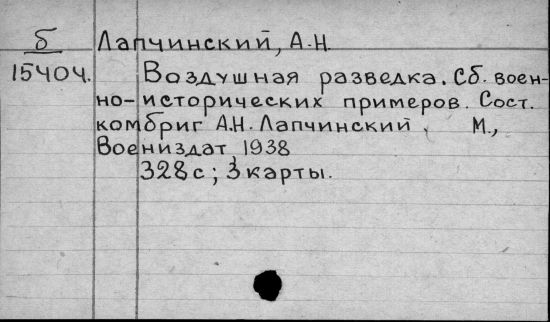 Б Лапчинский, А.Н.
15404. Воздушная разведка. Сб. воен-
но-исторических примеров. Сост.
комбриг А.Н. Лапчинский. М.,
Воениздат, 1938
328 с; 3 карты.